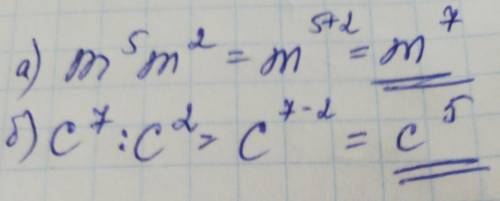 а) m⁵m² = m⁵⁺² = m⁷
б) c⁷ : c² = c⁷⁻² = c⁵